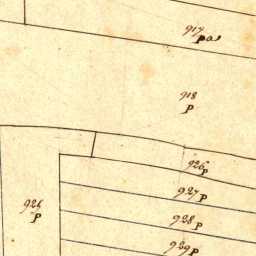 917
pa
918
P
926
P
927 P
928 P
929 P
P